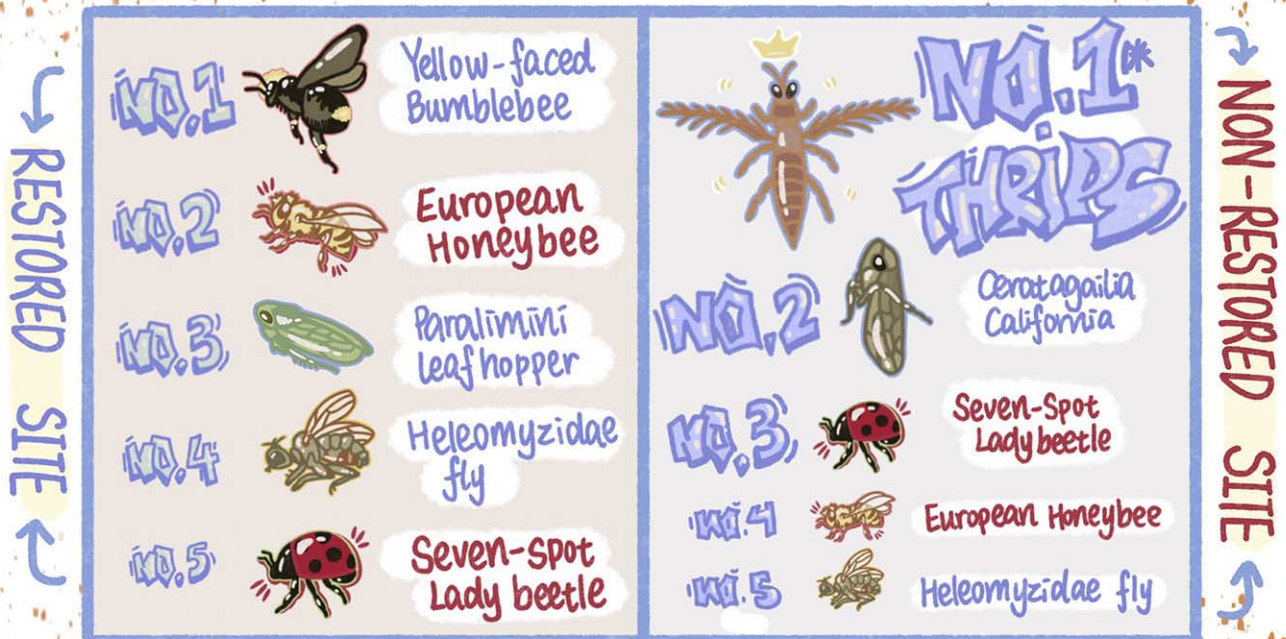 RESTORED SITE
NO.1
Yellow-faced
Bumblebee
NO.2
European
Honeybee
NO.3
Paralimini
leafhopper
NO.4
Heleomyzidae
fly
NO.5
Seven-Spot
Lady beetle
NO.1*
THRIPS
NO.2
Ceratagailia
California
NO.3
Seven-Spot
Lady beetle
NO.4
European Honeybee
NO.5
Heleomyzidae fly
NON-RESTORED SITE